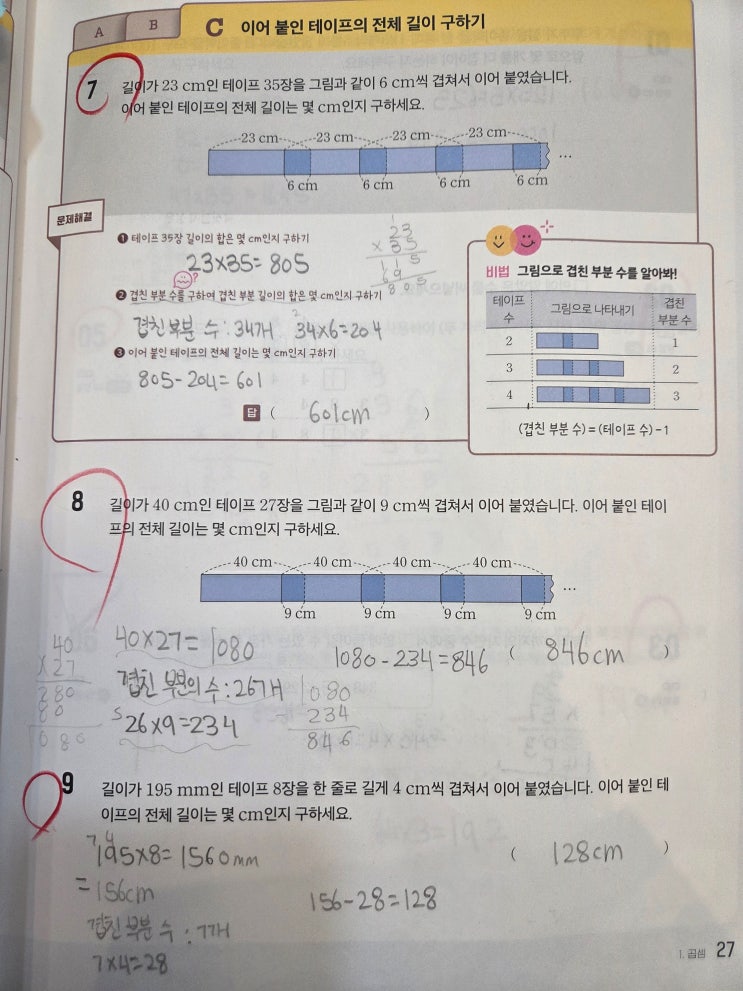 A B C 이어 붙인 테이프의 전체 길이 구하기
7 길이가 23 cm인 테이프 35장을 그림과 같이 6 cm씩 겹쳐서 이어 붙였습니다.
이어 붙인 테이프의 전체 길이는 몇 cm인지 구하세요.
23 cm 23 cm 23 cm 23 cm
...
6 cm 6 cm 6 cm 6 cm
문제해결
❶ 테이프 35장 길이의 합은 몇 cm인지 구하기
23×35=805
1
23
×35
115
69
805
?
❷ 겹친 부분 수를 구하여 겹친 부분 길이의 합은 몇 cm인지 구하기
겹친 부분 수 : 34개 34×6=204
2
❸ 이어 붙인 테이프의 전체 길이는 몇 cm인지 구하기
805-204=601
답 ( 601cm )
비법 그림으로 겹친 부분 수를 알아봐!
테이프 수 그림으로 나타내기 겹친 부분 수
2 1
3 2
4 3
(겹친 부분 수)=(테이프 수)-1
8 길이가 40 cm인 테이프 27장을 그림과 같이 9 cm씩 겹쳐서 이어 붙였습니다. 이어 붙인 테이
프의 전체 길이는 몇 cm인지 구하세요.
40 cm 40 cm 40 cm 40 cm
...
9 cm 9 cm 9 cm 9 cm
40
×27
280
80
1080
40×27=1080
겹친 부분의 수 : 26개
5
26×9=234
1080
-234
846
1080-234=846 ( 846cm )
9 길이가 195 mm인 테이프 8장을 한 줄로 길게 4 cm씩 겹쳐서 이어 붙였습니다. 이어 붙인 테
이프의 전체 길이는 몇 cm인지 구하세요.
7 4
195×8=1560mm
=156cm
겹친 부분 수 : 7개
7×4=28
156-28=128
( 128cm )
1. 곱셈 27